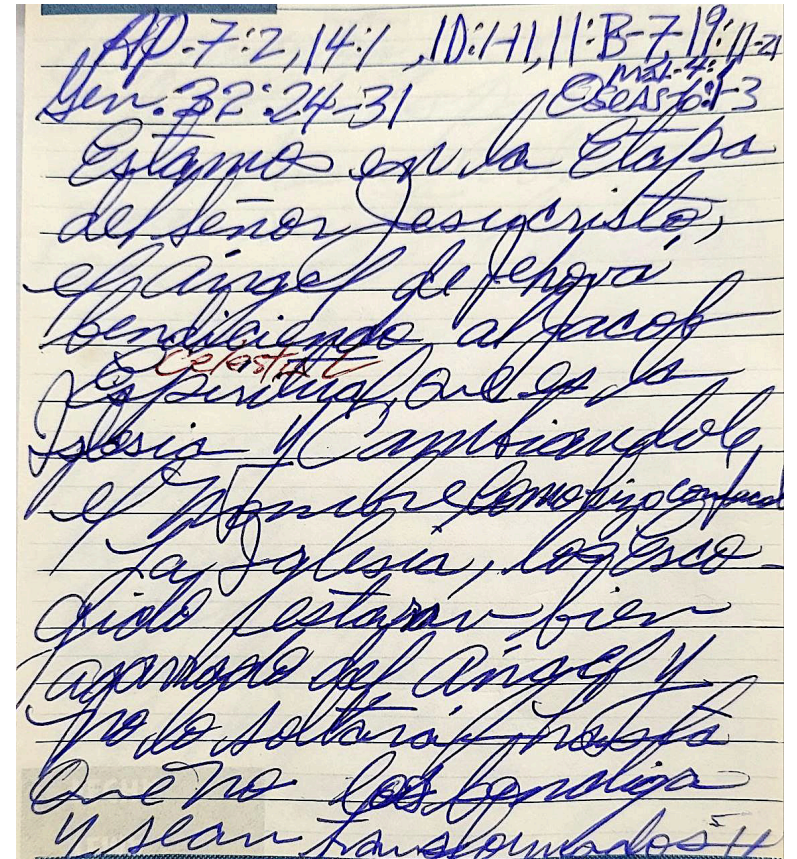 AP-7:2,14:1, 10:1-11, 11:B-7, 19:11-21
Mal-4:1
Gen. 32:24-31 Oseas-6:1-3
Estamos en la Etapa
del Señor Jesucristo,
el Ángel de Jehová
bendiciendo al Jacob
Celestial
Espiritual, que es la
Iglesia y Cambiandole
el Nombre como hizo con Jacob
La Iglesia, los Esco-
gido estarán bien
agarrado del Ángel y
no lo soltará hasta
que no los bendiga
y sean transformados